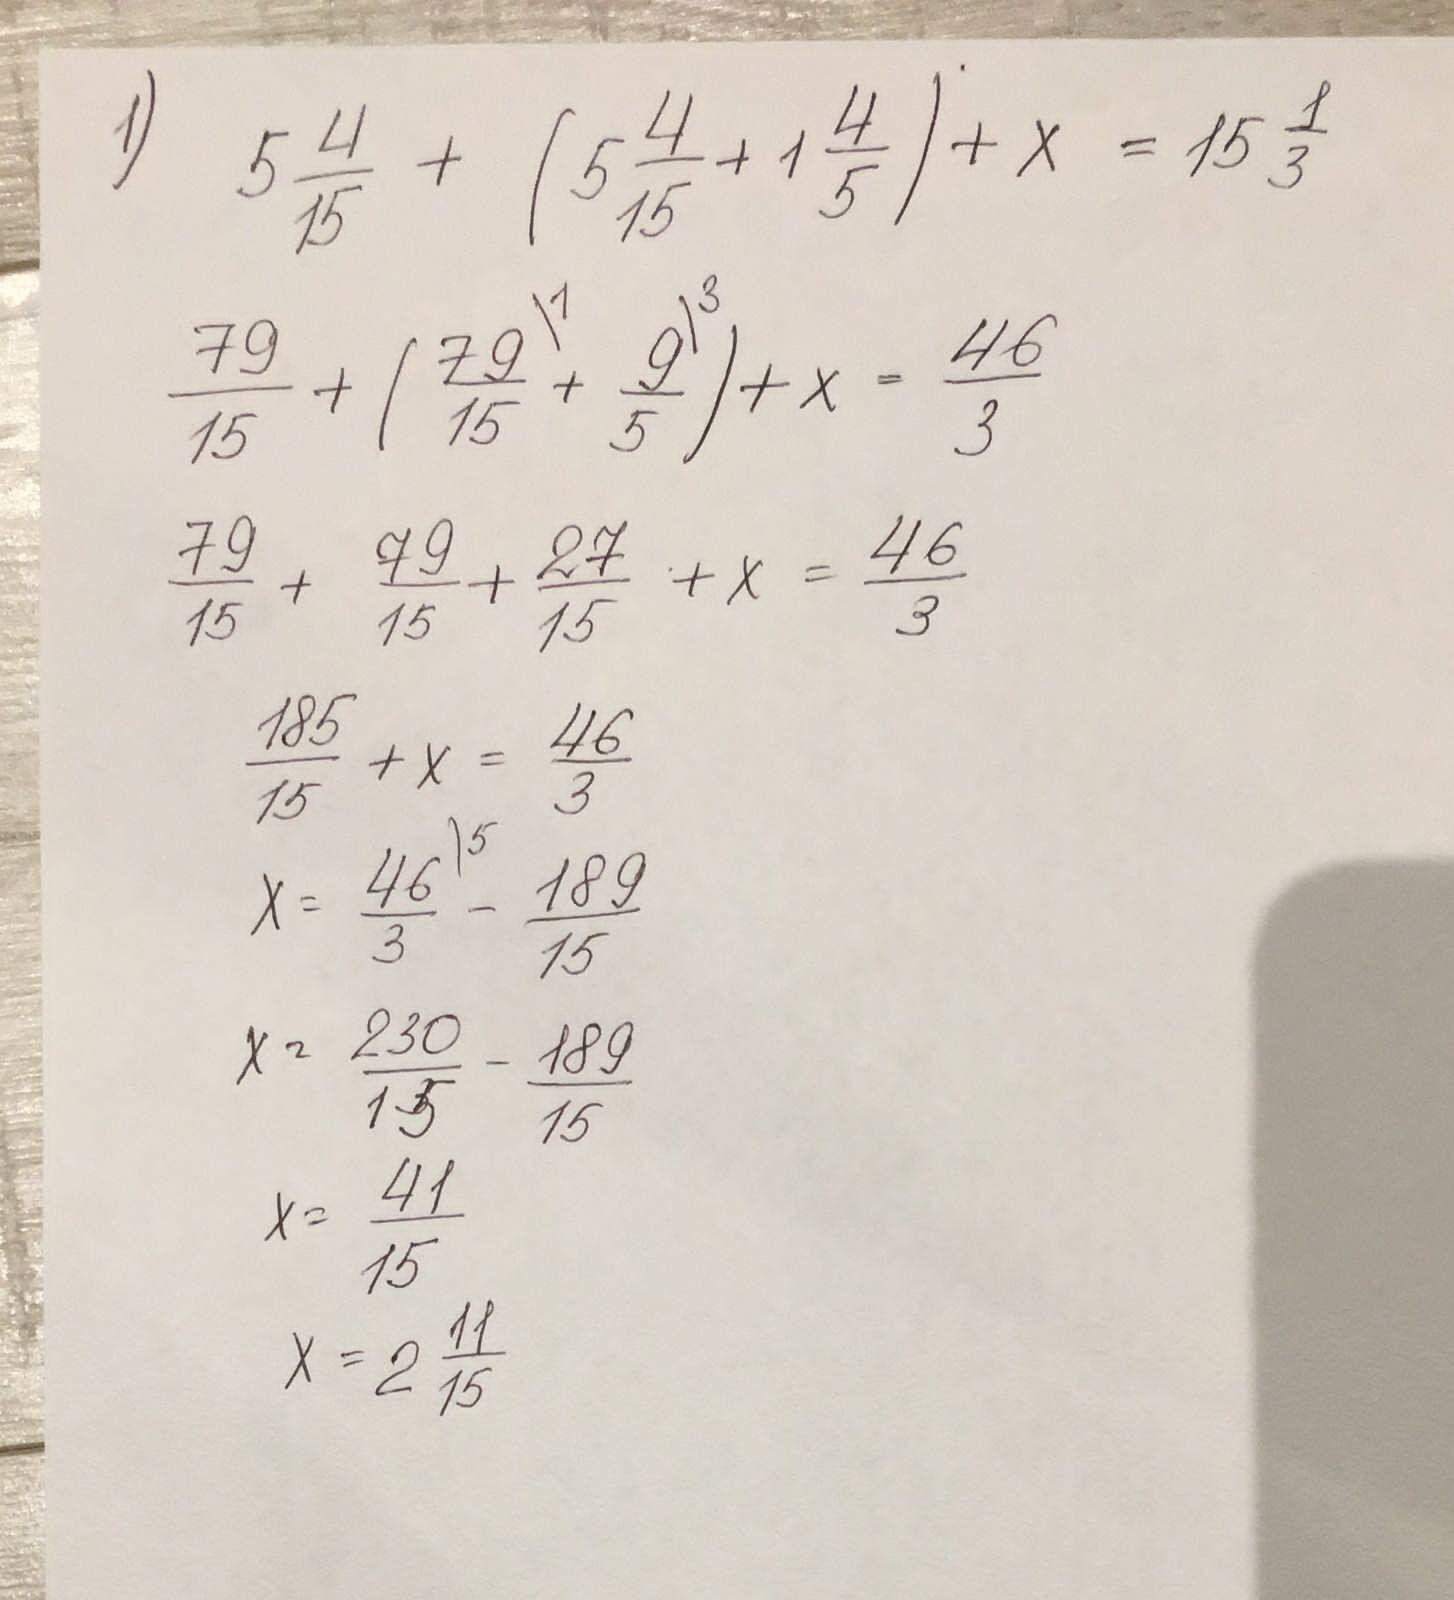 1) 5 4/15 + (5 4/15 + 1 4/5) + x = 15 1/3
79/15 + (79/15 \1 + 9/5 \3) + x = 46/3
79/15 + 79/15 + 27/15 + x = 46/3
185/15 + x = 46/3
x = 46/3 \5 - 189/15
x = 230/15 - 189/15
x = 41/15
x = 2 11/15